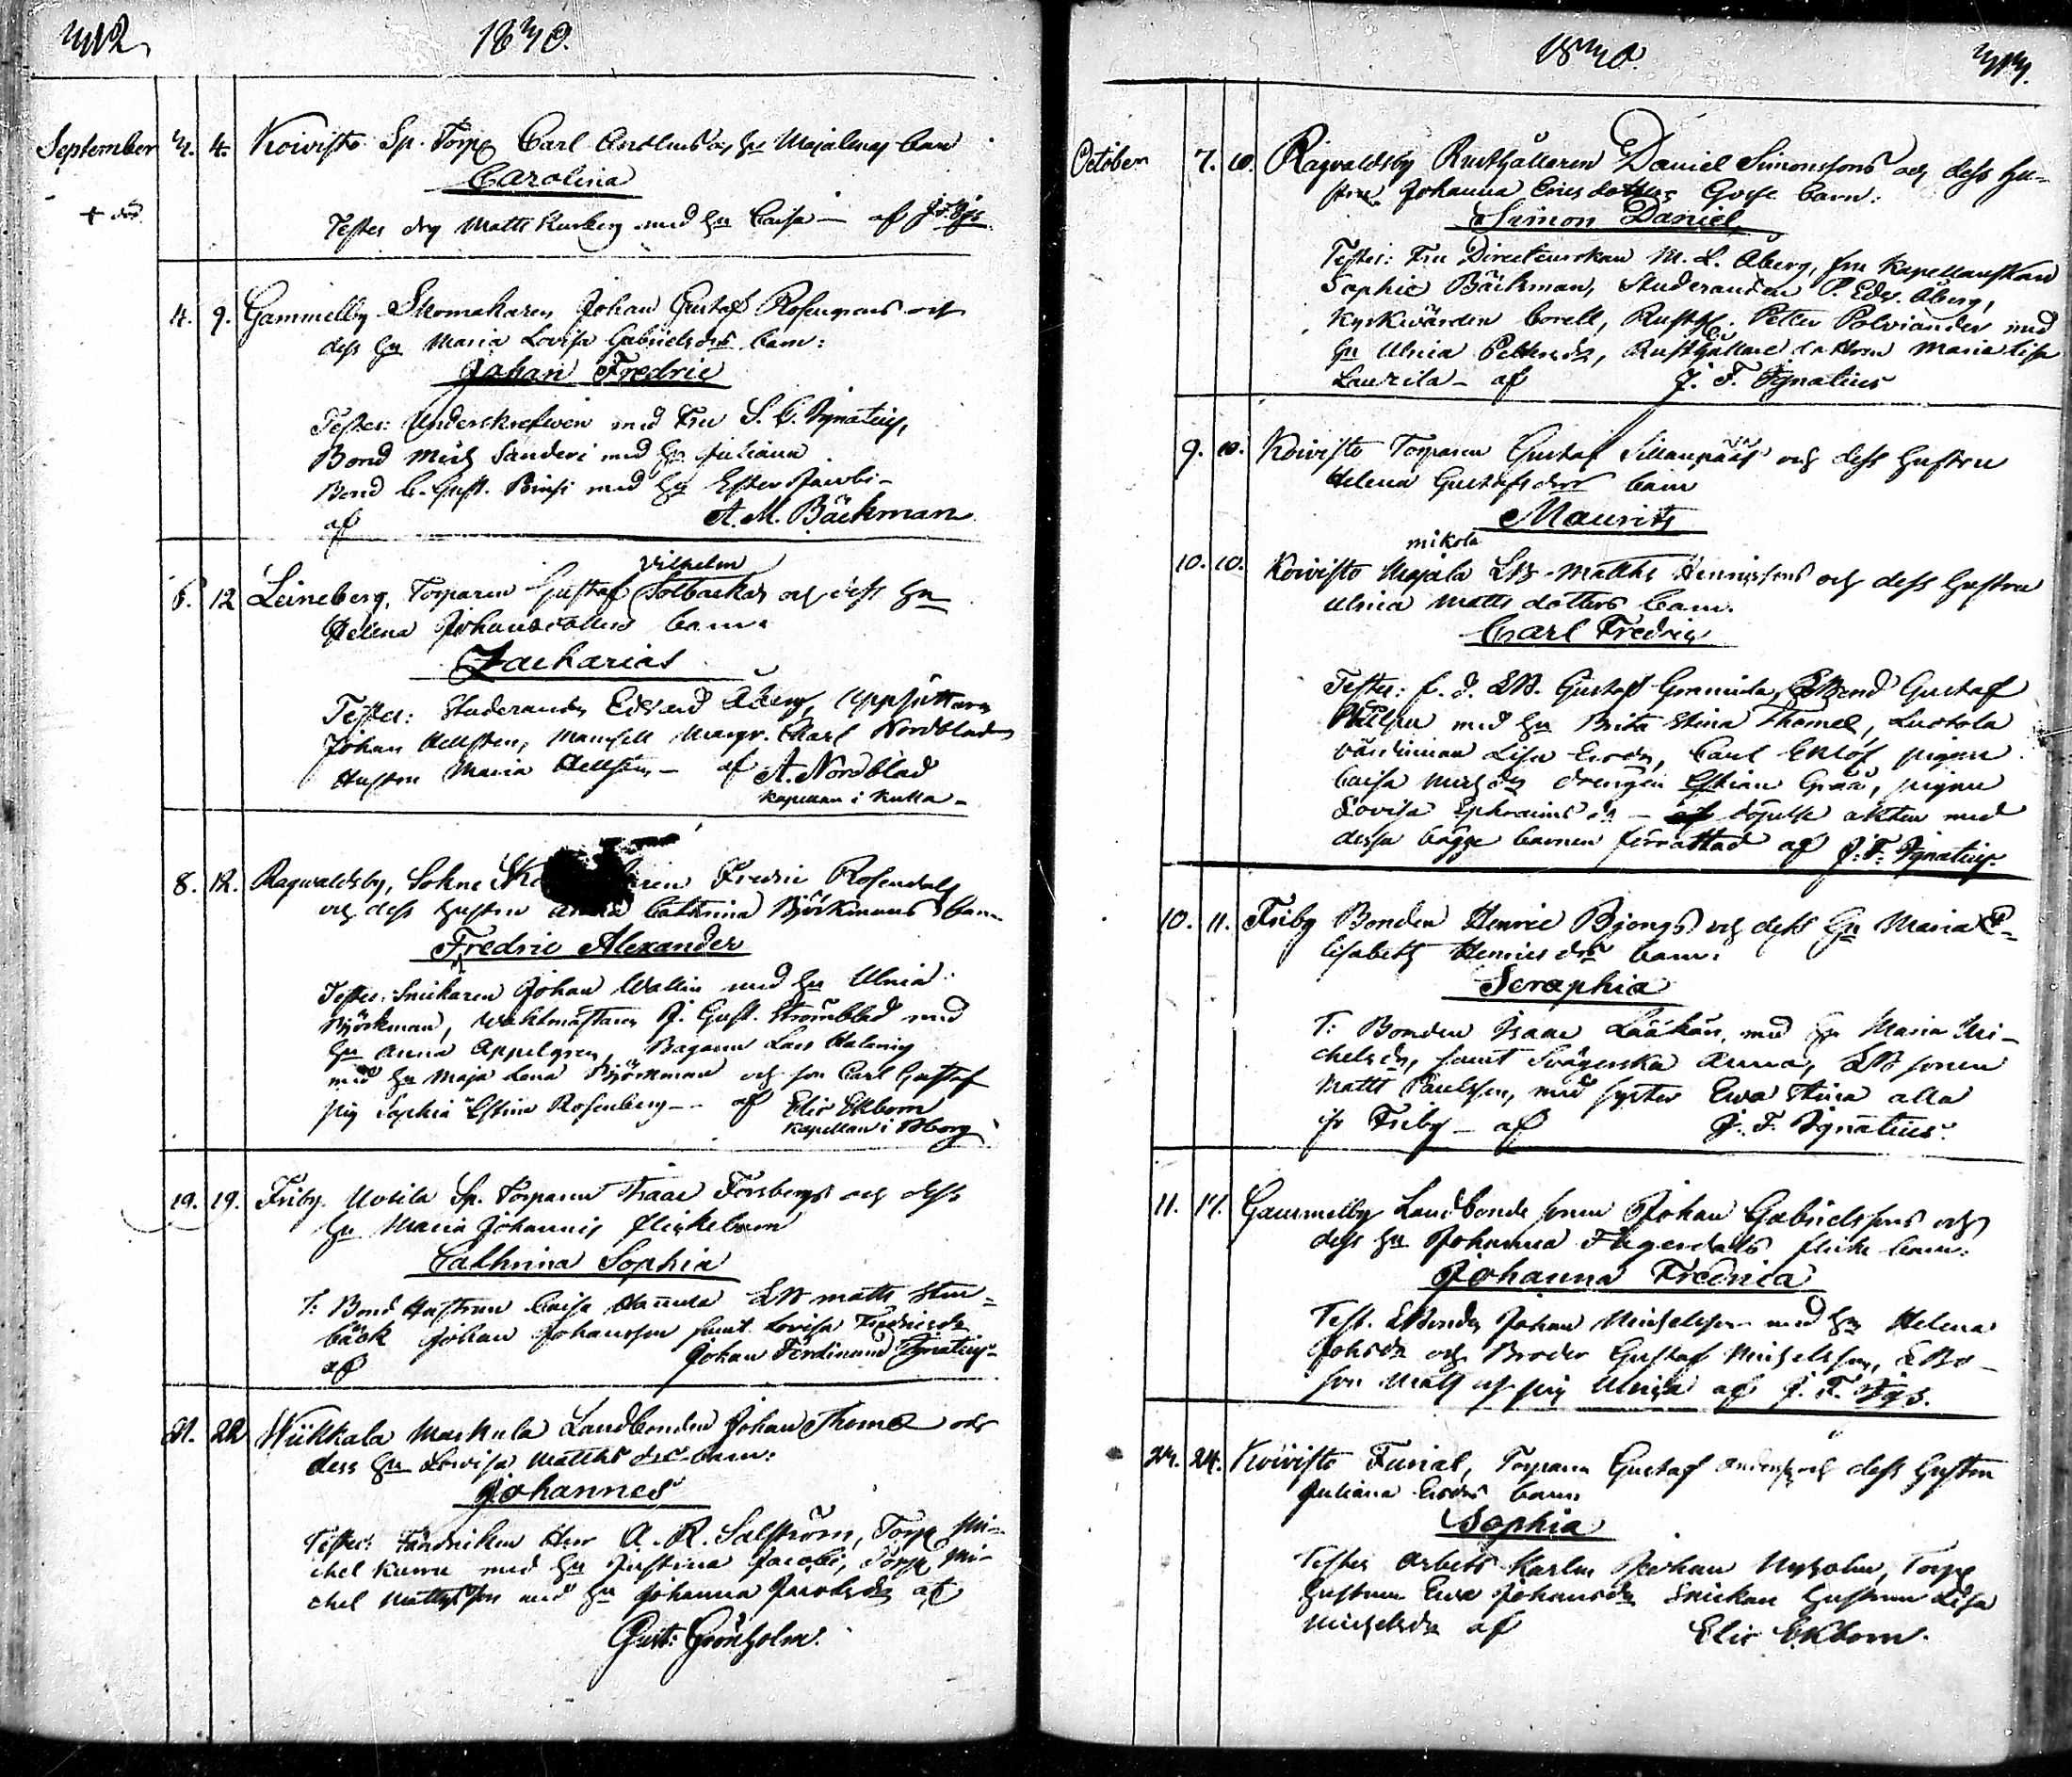 312.
1830.
September 3. 4. Koivisto Sp. Torp Carl och hu Majalenas barn
Carolina
+ död
Testes drg Matts med hu Caisa — af J.F. Igs.
4. 9. Gammelby Skomakaren Johan Gustaf Rosengrens och
dess hu Maria Lovisa Gabrielsdrs barn:
Johan Fredric
Testes: Underskrefwen med Fru S. C. Ignatius,
Bond Mich Sanderi med hu Juliana
Bond C. Gust. med hu Ester Jacobi —
af A. M. Bäckman
6. 12 Leineberg, Torparen Gustaf Vilhelm Solbackas och dess hu
Helena Johansdotters barn.
Zacharias
Testes: Studeranden Edvard Åberg, Uppsittaren
Johan Hellsten, Mamsell Margr. Charl Nordblad
Hustru Maria Hellsten — af A. Nordblad
Kapellan i Kulla —
8. 12. Ragwaldsby, Sokne Fredric Rosendals
och dess hustru Anna Cathrina Björkmans barn
Fredric Alexander
Testes: Snickaren Johan Wallin med hu Ulrica
Björkman, Waktmästaren J. Gust. Strömblad med
hu Anna Appelgren, Bagaren Lars
med hu Maja Lena Björkman och son Carl Gustaf
pig Sophia Rosenberg — af Elis Ekbom
Kapellan i Bborg
19. 19. Friby. Sp. Torparen Isaac Forsbergs och dess
hu Maria Johannis flickebarn
Cathrina Sophia
T: Bond Hustrun Caisa Hannula LB Matts Sten=
bäck Johan Johansson samt Lovisa Fredricsdr
af Johan Ferdinand Ignatius —
21. 22 Wiikkala Markula Landbonden Johan Thomæ och
dess hu Lovisa Matthsdrs barn:
Johannes
Testes: Fändriken Herr A. R. Salström, Torp Mi-
chel med hu Justina Jacobi, Torp Mi-
chel Mattsson med hu Johanna Jacobsdr af
Gust: Grönholm.
1830.
313.
October 7. 10. Ragvaldsby Rusthållaren Daniel Simonssons och dess hu=
stru Johanna Ericsdotters Gosse barn:
Simon Daniel
Testes: Fru Directeurskan M. L. Åberg, fru Kapellanskan
Sophie Bäckman, Studeranden P. Edv. Åberg,
Kyrkvärden Corell, Rusth: Petter Polviander med
hu Ulrica Pettersdr, Rusthållare dottren Maria Lisa
Laurila — af J. F. Ignatius
9. 10. Koivisto Torparen Gustaf Sillanpääs och dess hustru
Helena Gustafsdrs barn
Maurits
mikola
10. 10. Koivisto Majala LB Matths Henricssons och dess hustru
Ulrica Mattsdotters barn.
Carl Fredric
Testes: f. d. LB. Gustaf LBond Gustaf
med hu Brita Stina Thomæ, Luotola
värdinnan Lisa Ersdr, Carl Eklöf pigan
Caisa Michsdr drengen Grää, pigan
Lovisa Ephraimsdr — döpelse akten med
dessa bägge barnen förrättad af J. F. Ignatius
10. 11. Friby Bonden Henric Bjongs och dess hu Maria E=
lisabeth Henricsdrs barn:
Seraphia
T: Bonden Isaac Lääkän, med hu Maria Mi-
chelsdr, samt Svägerska Anna, LB sonen
Matts Paulsson, med syster Ewa Stina alla
fr Friby — af J. F. Ignatius
11. 17. Gammelby Landbonde sonen Johan Gabrielssons och
dess hu Johanna Fagerdals flicke barn:
Johanna Fredrica
Test. LBonden Johan Michelsson med hu Helena
Johsdr och Broder Gustaf Michelsson, LBo-
son Matts och pig Ulrica af J. F. Igs.
24. 24. Koivisto Torparen Gustaf Anderss och dess hustru
Juliana Ersdrs barn
Sophia
Testes Arbets Karlen Johan Nyholm, Torp
hustrun Ewa Johansdr Snickare hustrun Lisa
Michelsdr af Elis Ekbom.